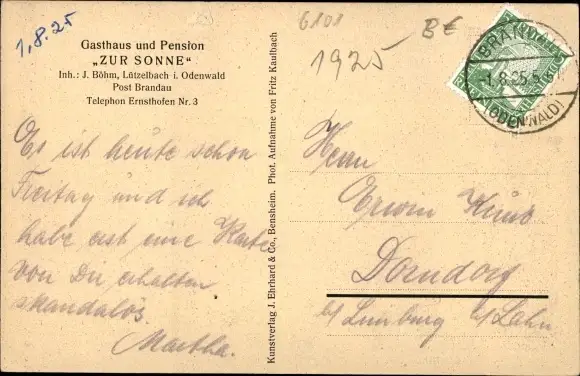 1.8.25
Gasthaus und Pension
„ZUR SONNE"
Inh.: J. Böhm, Lützelbach i. Odenwald
Post Brandau
Telephon Ernsthofen Nr. 3
Es ist heute schon
Freitag und ich
habe erst eine Karte
von Dir erhalten
skandalös.
Martha.
Kunstverlag J. Ehrhard & Co., Bensheim. Phot. Aufnahme von Fritz Kaulbach
6101
B€
1925
BRANDAU
-1.8.25.5
(ODENWALD)
Herrn
Erwin
Dorndorf
b/ Limburg b/ Lahn